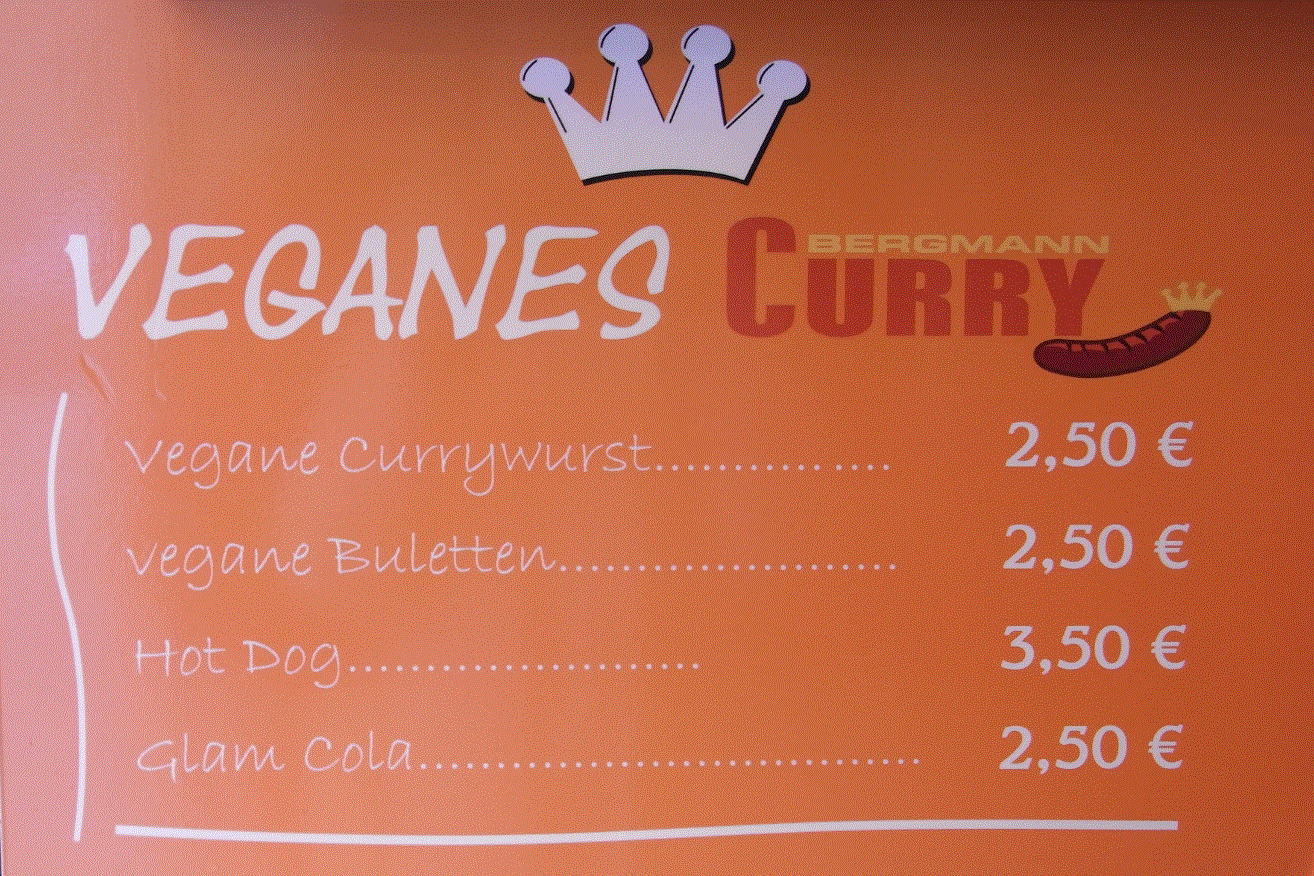 VEGANES BERGMANN CURRY
Vegane Currywurst............... 2,50 €
Vegane Buletten........................ 2,50 €
Hot Dog......................... 3,50 €
Glam Cola................................... 2,50 €